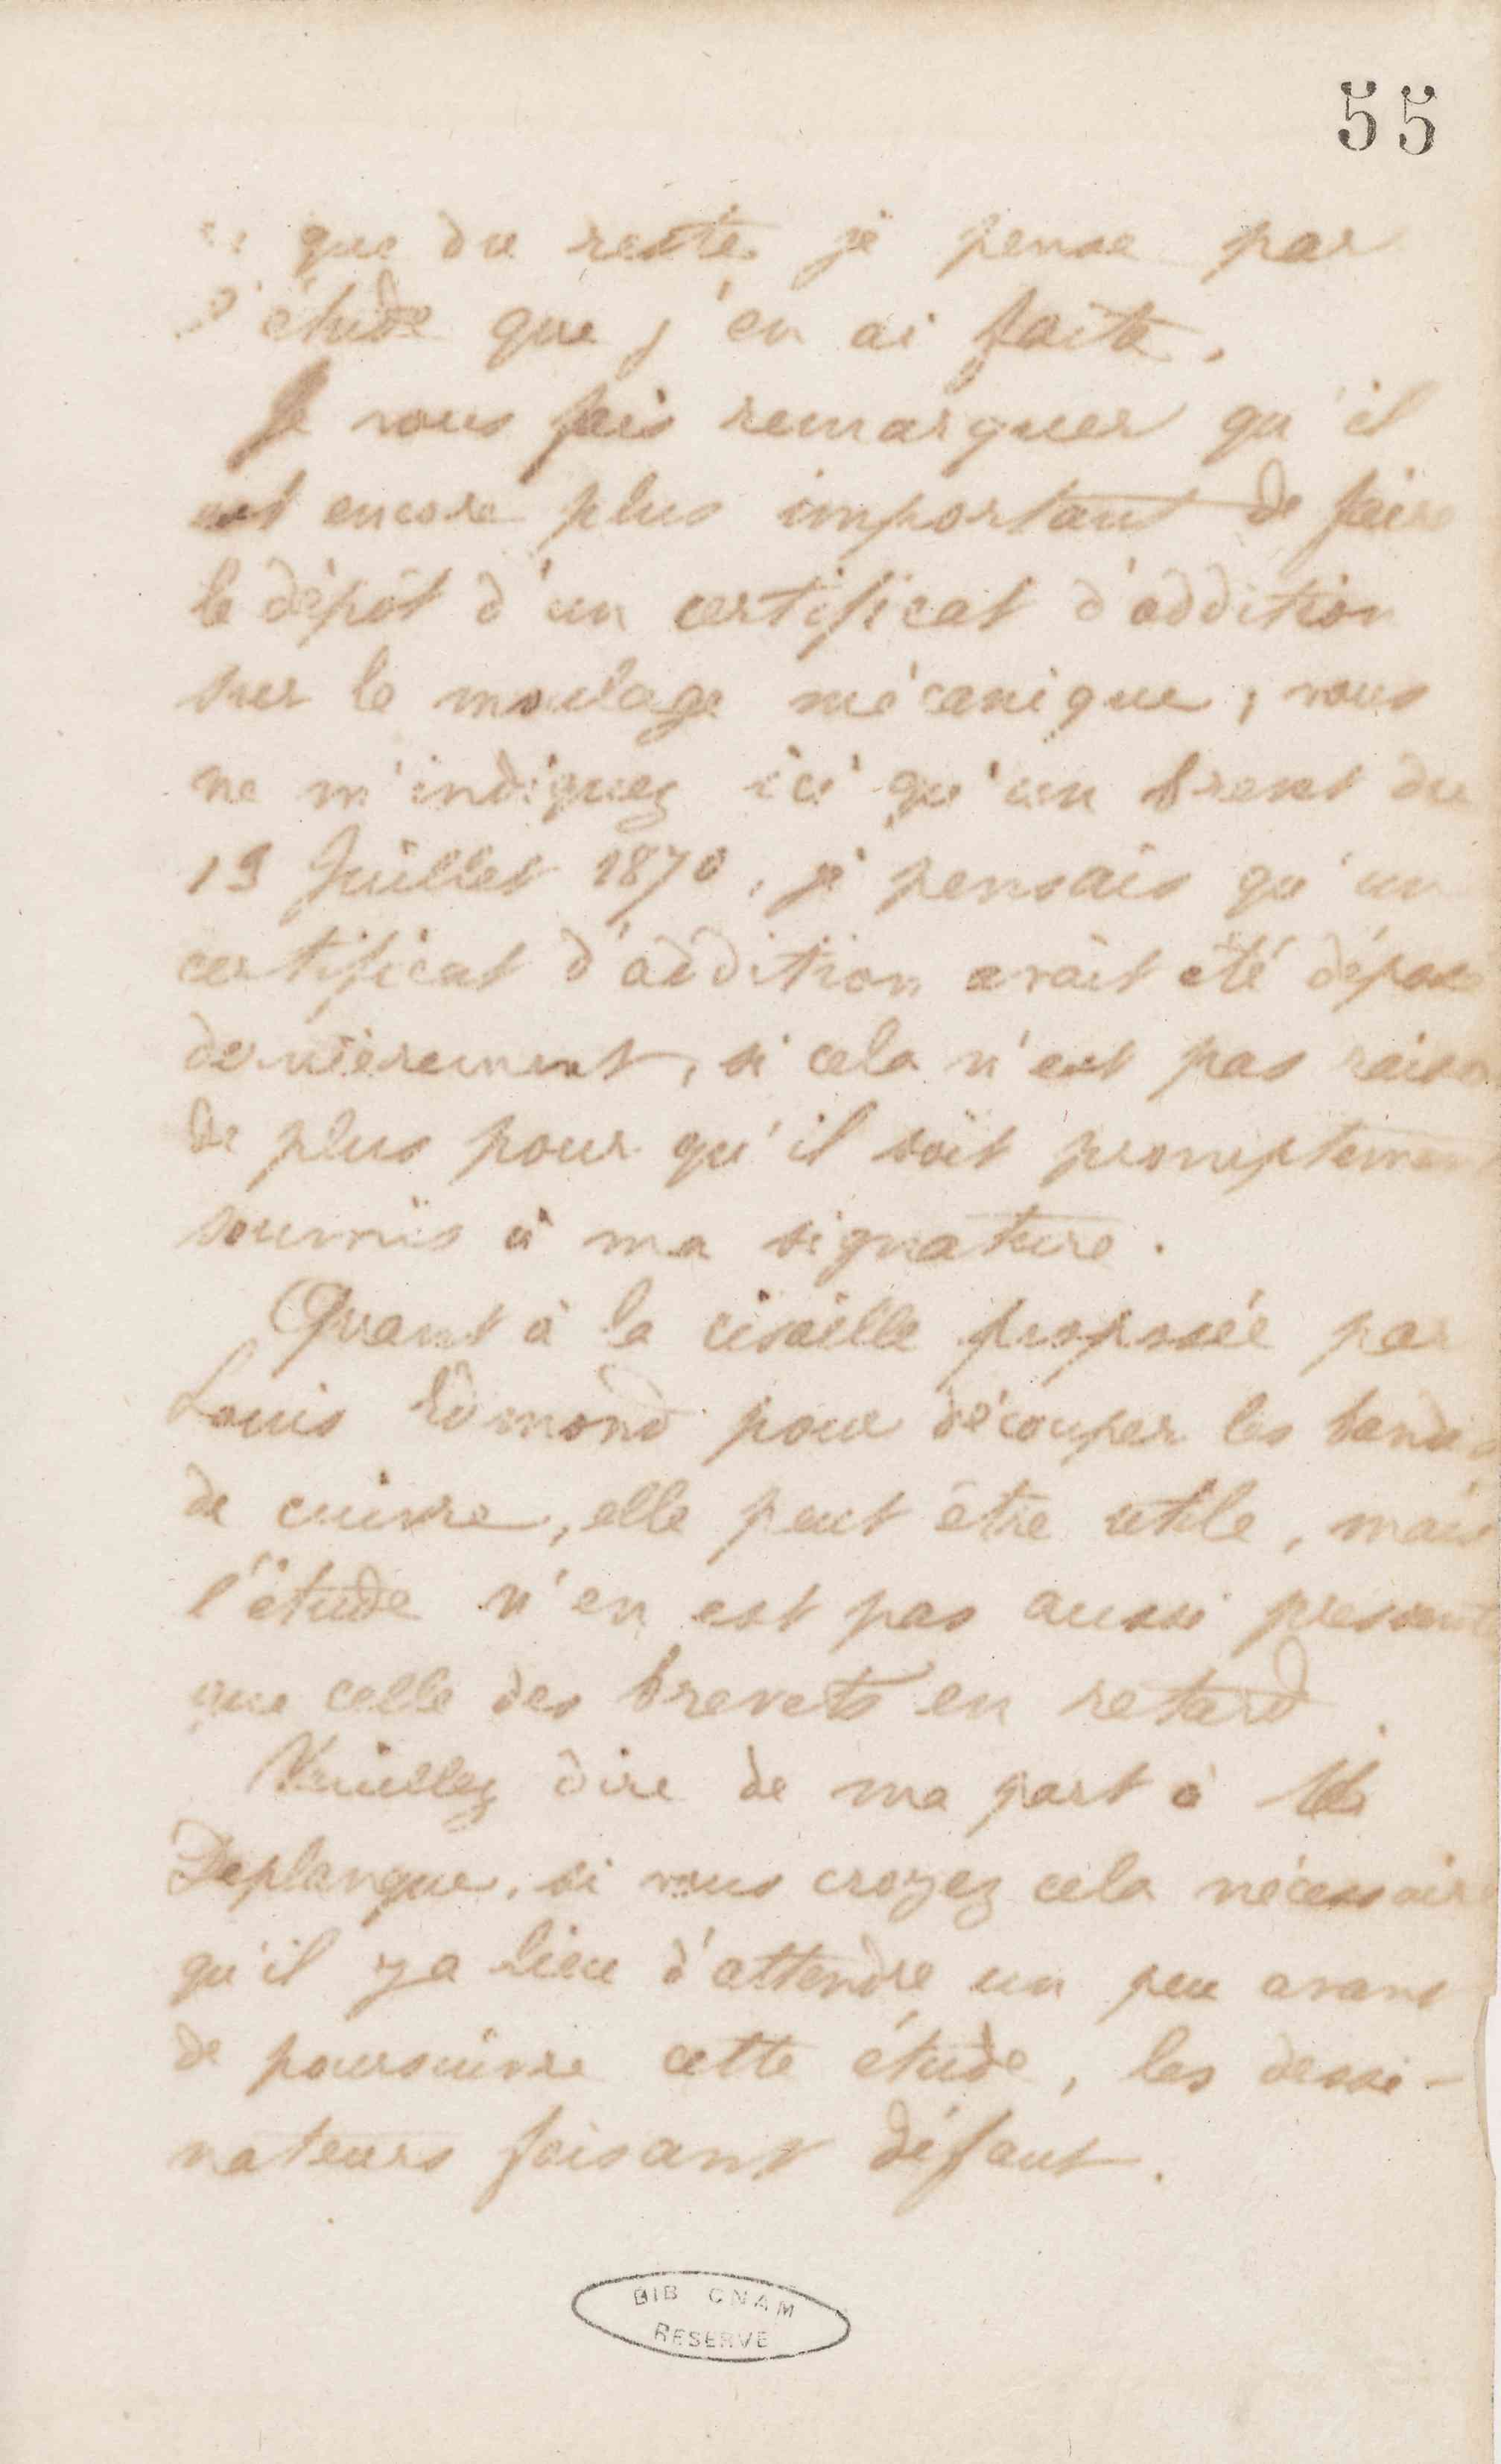 55
ce que du reste je pense par
l'étude que j'en ai faite.
Je vous fais remarquer qu'il
est encore plus important de faire
le dépôt d'un certificat d'addition
sur le moulage mécanique, vous
ne m'indiquez ici qu'un brevet du
19 Juillet 1870, je pensais qu'un
certificat d'addition avait été déposé
dernièrement, si cela n'est pas raison
de plus pour qu'il soit promptement
soumis à ma signature.
Quant à la cisaille proposée par
Louis Edmond pour découper les bandes
de cuivre, elle peut être utile, mais
l'étude n'en est pas aussi pressante
que celle des brevets en retard.
Veuillez dire de ma part à M.
Deplanque, si vous croyez cela nécessaire
qu'il y a lieu d'attendre un peu avant
de poursuivre cette étude, les dessi-
nateurs faisant défaut.
BIB CNAM
RESERVE